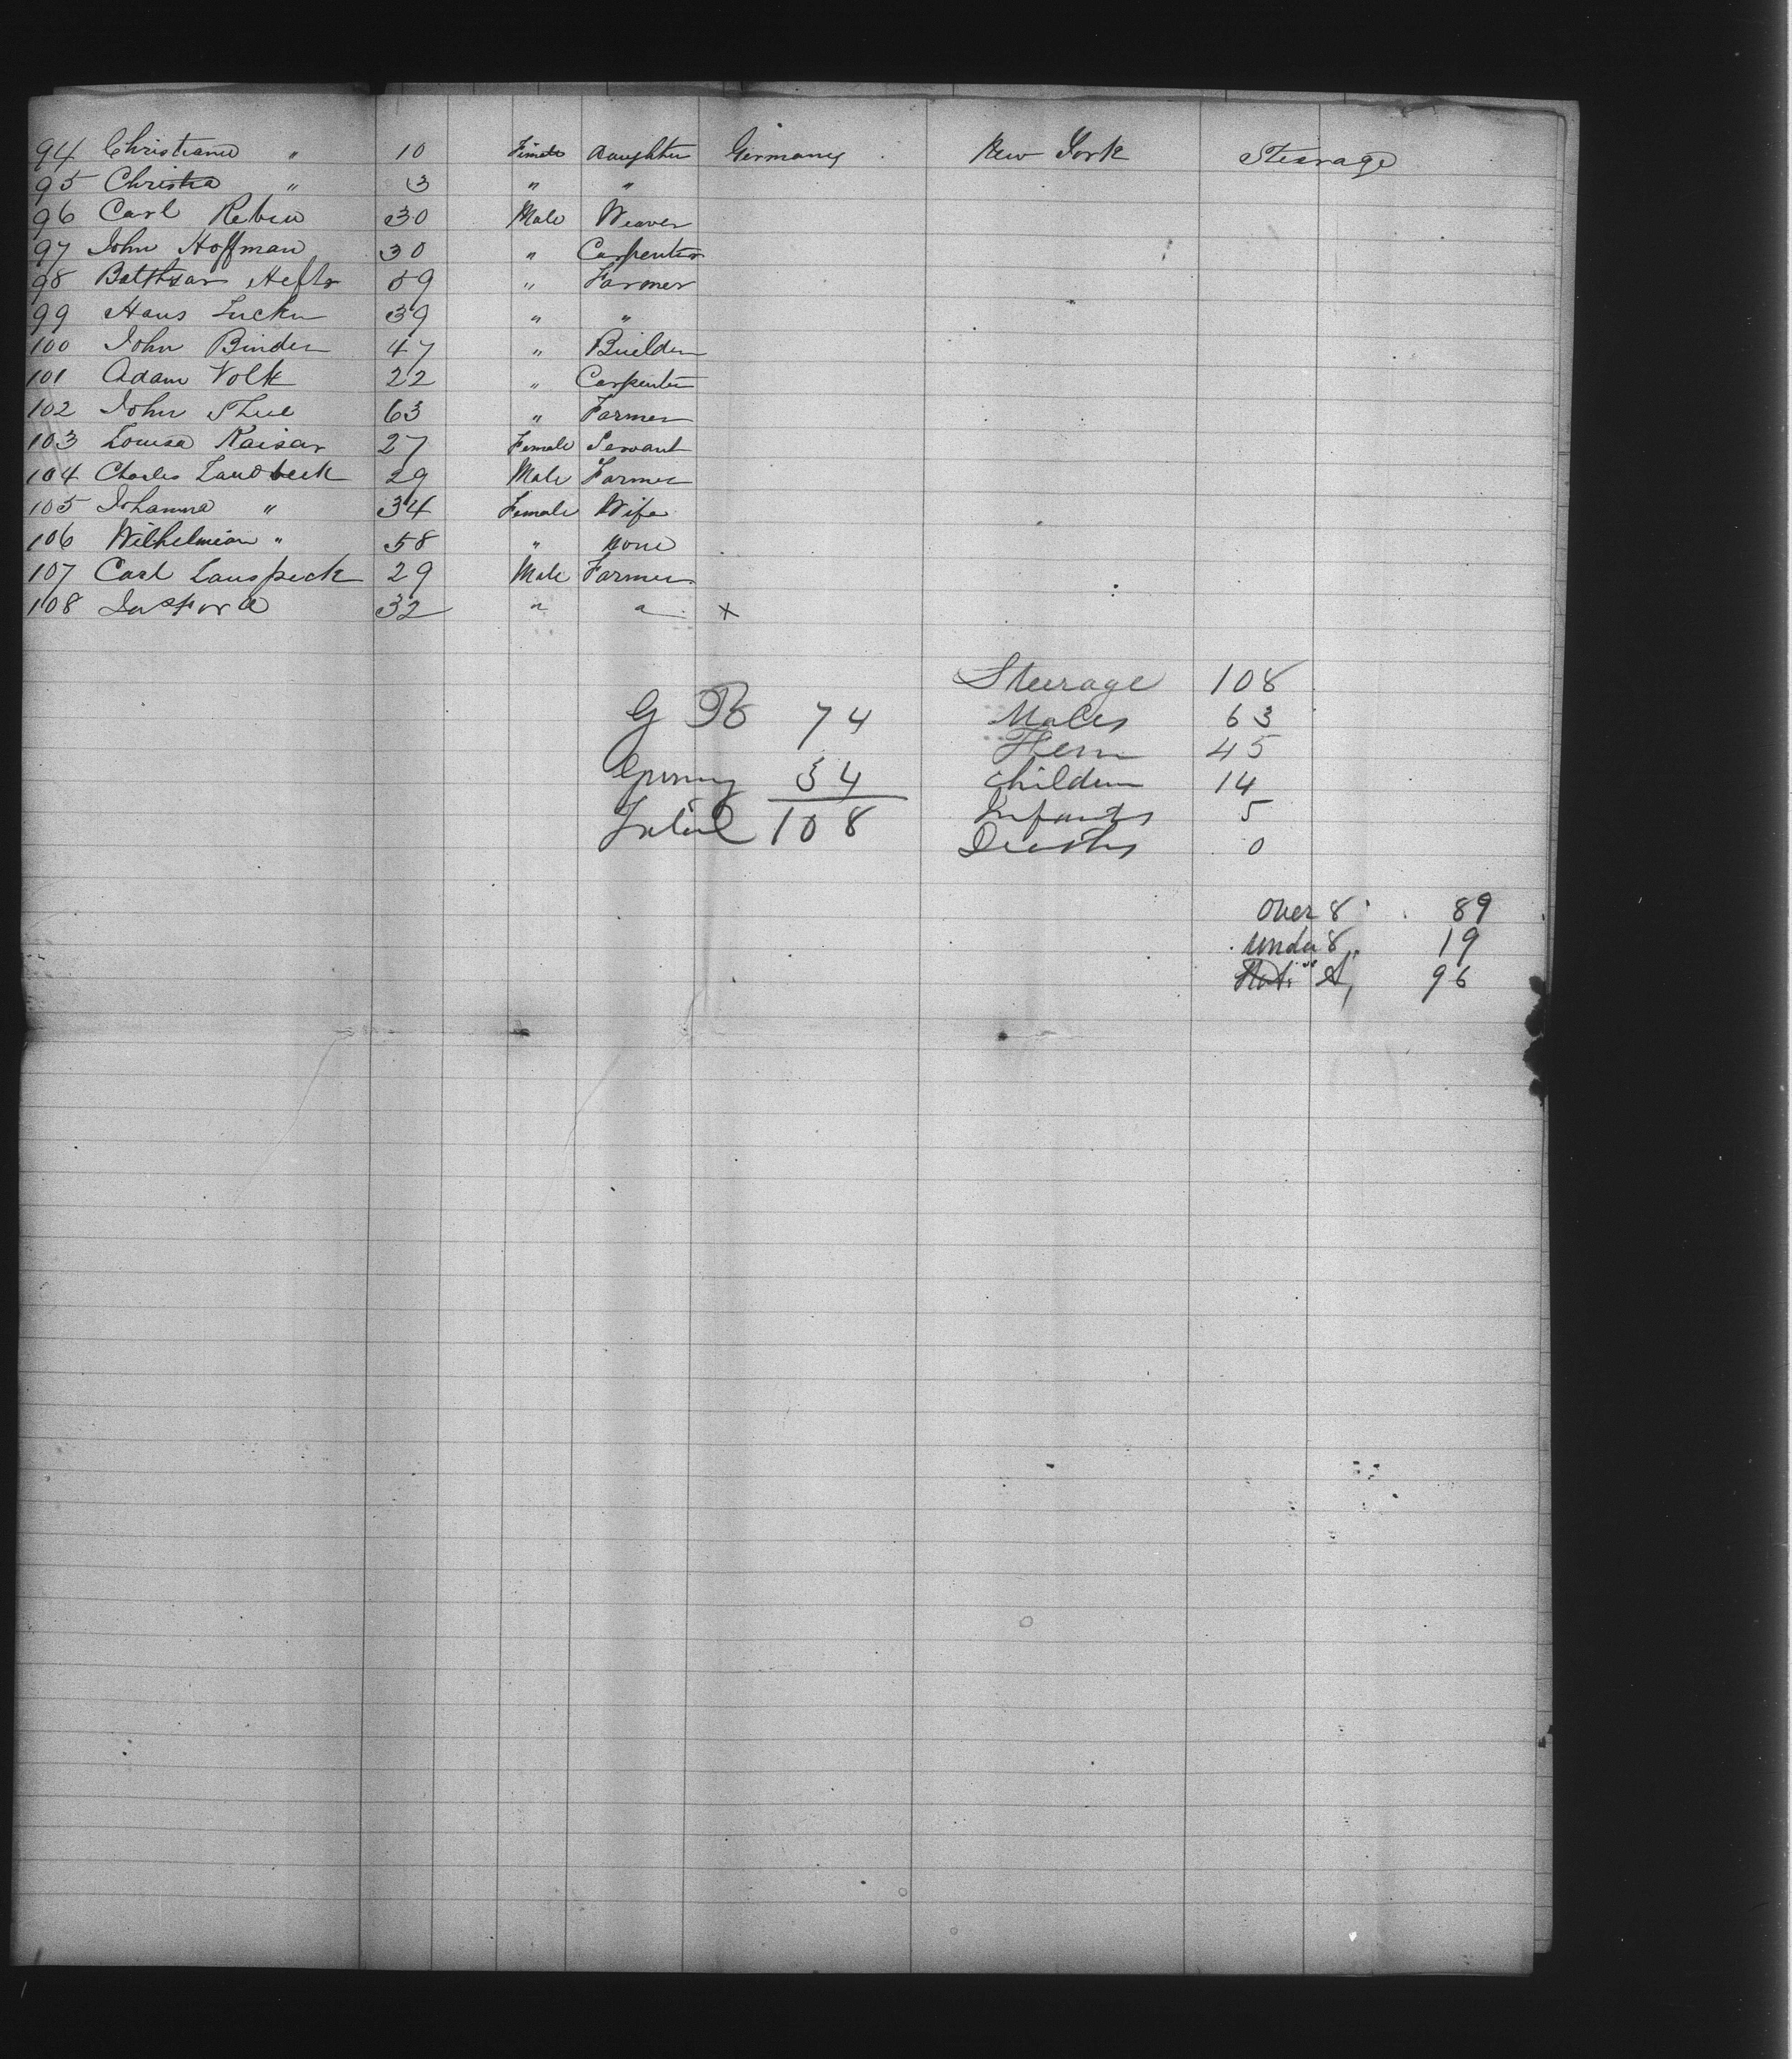 94 Christiana " 10 Female Daughter Germany New York Steerage
95 Christia " 3 " "
96 Carl 30 Male Weaver
97 John Hoffman 30 " Carpenter
98 Balthsar 59 " Farmer
99 Hans 39 " "
100 John Binder 47 " Builder
101 Adam Volk 22 " Carpenter
102 John 63 " Farmer
103 Louisa Kaisar 27 Female Servant
104 Charles Landbeck 29 Male Farmer
105 Johanna " 34 Female Wife
106 Wilhelmian " 58 " None
107 Carl Lanspeck 29 Male Farmer
108 32 " " x
Steerage 108
G B 74 Males 63
Fem 45
Germany 34 Children 14
Total 108 Infants 5
Deaths 0
Over 8 89
Under 8 19
96